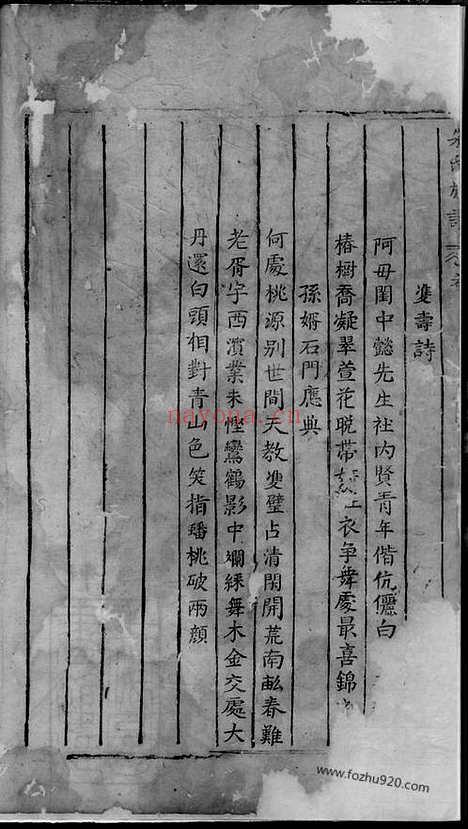 雙壽詩
阿母閨中懿先生社內賢青年偕伉儷白
椿樹喬凝翠萱花晚帶衣争舞處最喜錦
孫婿石門應典
何處桃源別世間天教雙璧占清閑開荒南畝春難
老胥宇西濱業未慳鸞鶴影中斕綵舞木金交處大
丹還白頭相對青山色笑指蟠桃破兩顏
nayona.cn
www.fozhu920.com